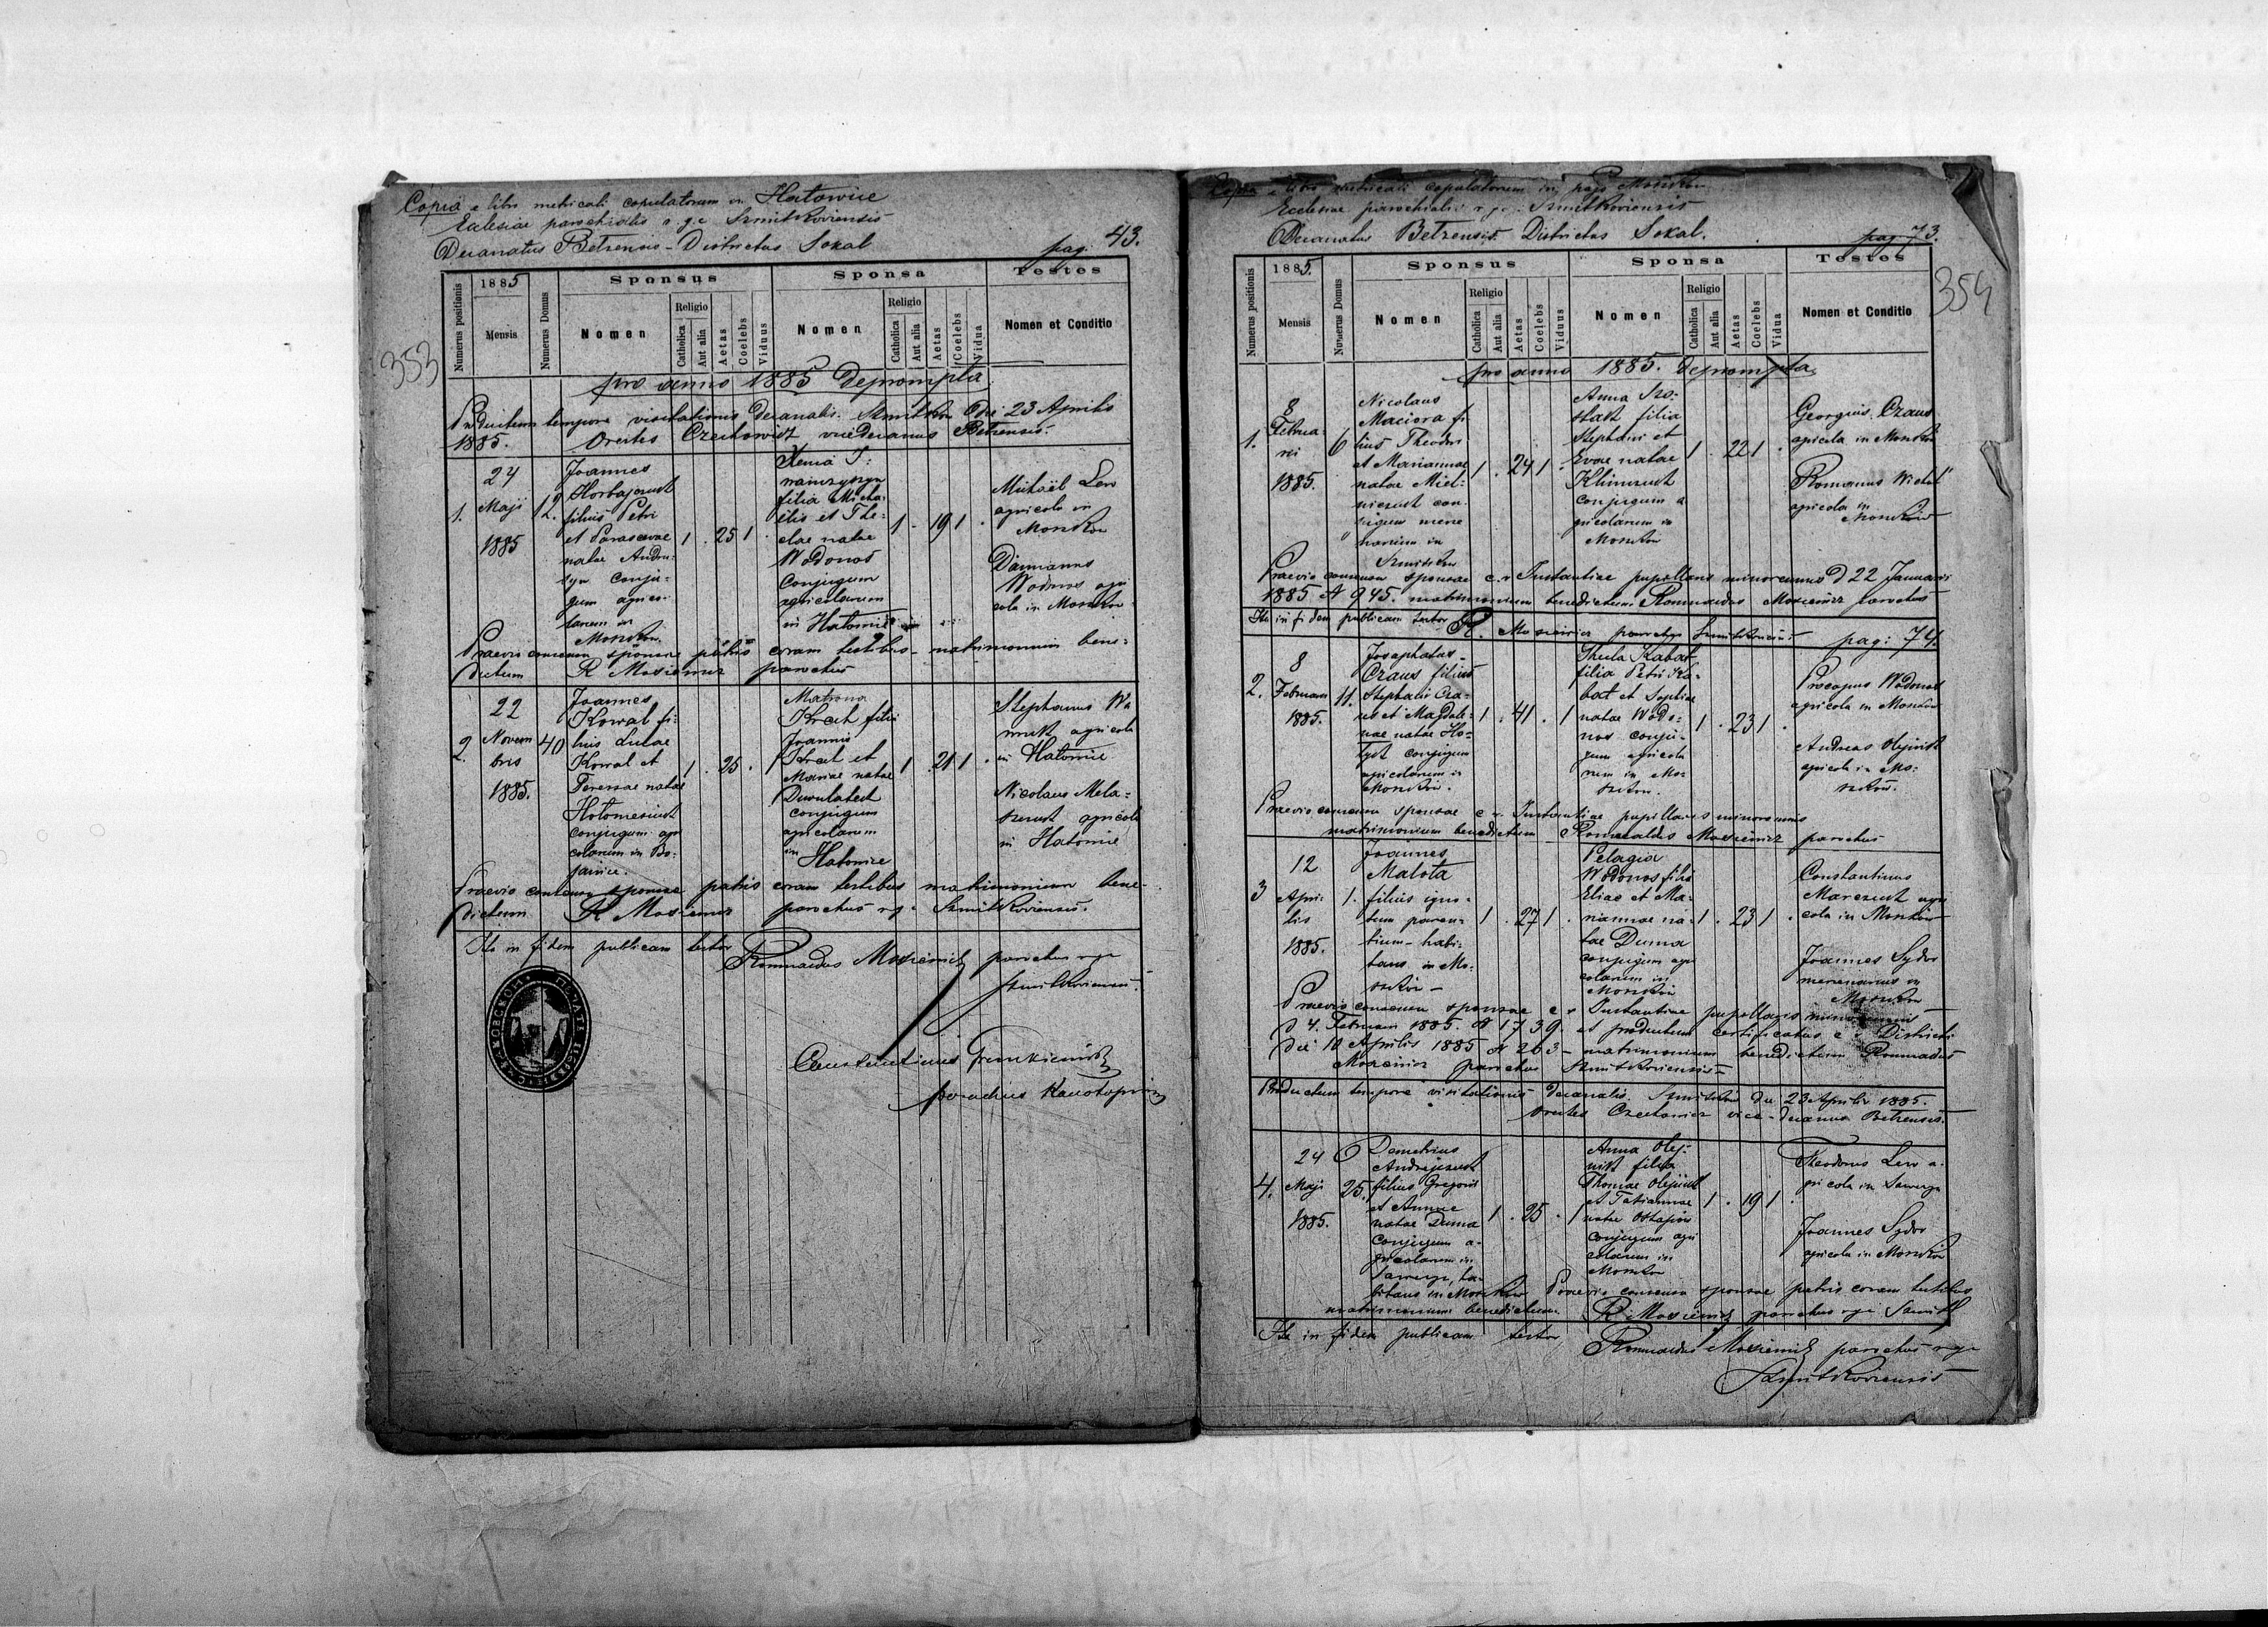 Copia e libro metricali copulatorum in Hatowice
Ecclesiae parochialis r. g. c. Szmitkoviensis
Decanatus Betzensis - Districtus Sokal
pag. 43.
353
Numerus positionis
1885
Mensis
Numerus Domus
Sponsus
Nomen
Religio
Catholica
Aut alia
Aetas
Coelebs
Viduus
Sponsa
Nomen
Religio
Catholica
Aut alia
Aetas
Coelebs
Vidua
Testes
Nomen et Conditio
pro anno 1885 deprompta
Productum tempore visitationis decanalis. Szmitkow die 23 Aprilis
1885. Orestes Czechowicz vicedecanus Betzensis.
1.
24
Maji
1885
12.
Joannes
Horbajczuk
filius Petri
et Parascevae
natae Andru-
syn conju-
gum agrico-
larum in
Moszkow
1 . 25 1 .
Xenia
filia Micha-
elis et The-
clae natae
Wodonos
conjugum
agricolarum
in Hatowice
1 - 19 1 .
Michaël Lew
agricola in
Moszkow
Damianus
Wodonos agri
cola in Moszkow
Praevio consensu sponsae patris coram testibus - matrimonium bene-
dictum R Mosiewicz parochus
2.
22
Novem
bris
1885.
40
Joannes
Kowal fi-
lius Lucae
Kowal et
Teressae natae
conjugum agri
colarum in Bo-
janice.
1 . 25 .
Matrona
filia
Joannis
et
Mariae natae
conjugum
agricolarum
in
Hatowice
1 . 21 1 .
Stephanus
agricola
in Hatowice
Nicolaus Mela-
szczuk agricola
in Hatowice
Praevio consensu sponsae patris coram testibus matrimonium bene-
dictum R Mosiewicz parochus r g. Szmitkoviensis.
Ita in fidem publicam testor
Romualdus Mosiewicz parochus r g c
Szmitkoviensis.
Constantinus
parochus
Copia e libro metricali copulatorum in pago Moszkow
Ecclesiae parochialis r. g. c. Szmitkoviensis
Decanatus Betzensis. Districtus Sokal.
pag. 73.
354
Numerus positionis
1885.
Mensis
Numerus Domus
Sponsus
Nomen
Religio
Catholica
Aut alia
Aetas
Coelebs
Viduus
Sponsa
Nomen
Religio
Catholica
Aut alia
Aetas
Coelebs
Vidua
Testes
Nomen et Conditio
pro anno 1885. deprompta
1.
8
Februa-
rii
1885.
6
Nicolaus
Maciora fi
lius Theodori
et Mariannae
natae Miel-
niczuk con-
jugum merce
narium in
Szmitkow
1 . 24 1 .
Anna Szo-
stak filia
Stephani et
Evae natae
Klimczuk
conjugum a
gricolarum in
Moszkow
1 . 22 1 .
Georgius Czaus
agricola in Moszkow
Romanus
agricola in
Moszkow
Praevio consensu sponsae c. r. Instantiae pupillaris minorennis d 22 Januarii
1885 N 945. matrimonium benedictum Romualdus Mosiewicz parochus
Ita in fidem publicam testor R. Mosiewicz parochus Szmitkoviensis
pag: 74.
2.
8
Februarii
1885.
11.
Josephatus
Czaus filius
Stephani Cza-
us et Magdale-
nae natae Ho-
conjugum
agricolarum in
Moszkow.
1 . 41 . 1
Thecla Kabat
filia Petri Ka-
bat et Sophiae
natae Wodo-
nos conju-
gum agricola
rum in Mo-
szkow.
1 . 23 1 .
Procopius Wodonos
agricola in Moszkow
Andreas Olejnik
agricola in Mo-
szkow.
Praevio consensu sponsae c. r. Instantiae pupillaris minorennis
matrimonium benedictum Romualdus Mosiewicz parochus
3
12
Apri-
lis
1885.
1.
Joannes
Malota
filius igno-
tum paren-
tium - habi-
tans in Mo-
szkow -
1 . 27 1 .
Pelagia
Wodonos filia
Eliae et Ma-
riannae na-
tae Duma
conjugum agri
colarum in
Moszkow
1 . 23 1 .
Constantinus
Marczuk agri
cola in Moszkow
Joannes Sydor
mercenarius in
Moszkow
Praevio consensu sponsae c r Instantiae pupillaris minorennis
d 4. Februarii 1885. N 1739. et productum certificatus c r Districti
die 10 Aprilis 1885 N 263 - matrimonium benedictum Romualdus
Mosiewicz parochus Szmitkoviensis -
Productum tempore visitationis decanalis. Szmitkow die 23 Aprilis 1885.
Orestes Czechowicz vice-decanus Betzensis.
4.
24
Maji
1885.
25.
Demetrius
Andrejczuk
filius Gregorii
et Annae
natae Duma
conjugum a-
gricolarum in
ha-
bitans in Moszkow
1 . 25 . 1
Anna Olej-
nik filia
Thomae Olejnik
et Tatiannae
natae Ostapiuk
conjugum agri
colarum in
Moszkow
1 . 19 1 .
Theodorus Lew a-
gricola in
Joannes Sydor
agricola in Moszkow
Praevio consensu sponsae patris coram testibus
matrimonium benedictum. R Mosiewicz parochus r g c Szmitk
Ita in fidem publicam testor
Romualdus Mosiewicz parochus r g c
Szmitkoviensis